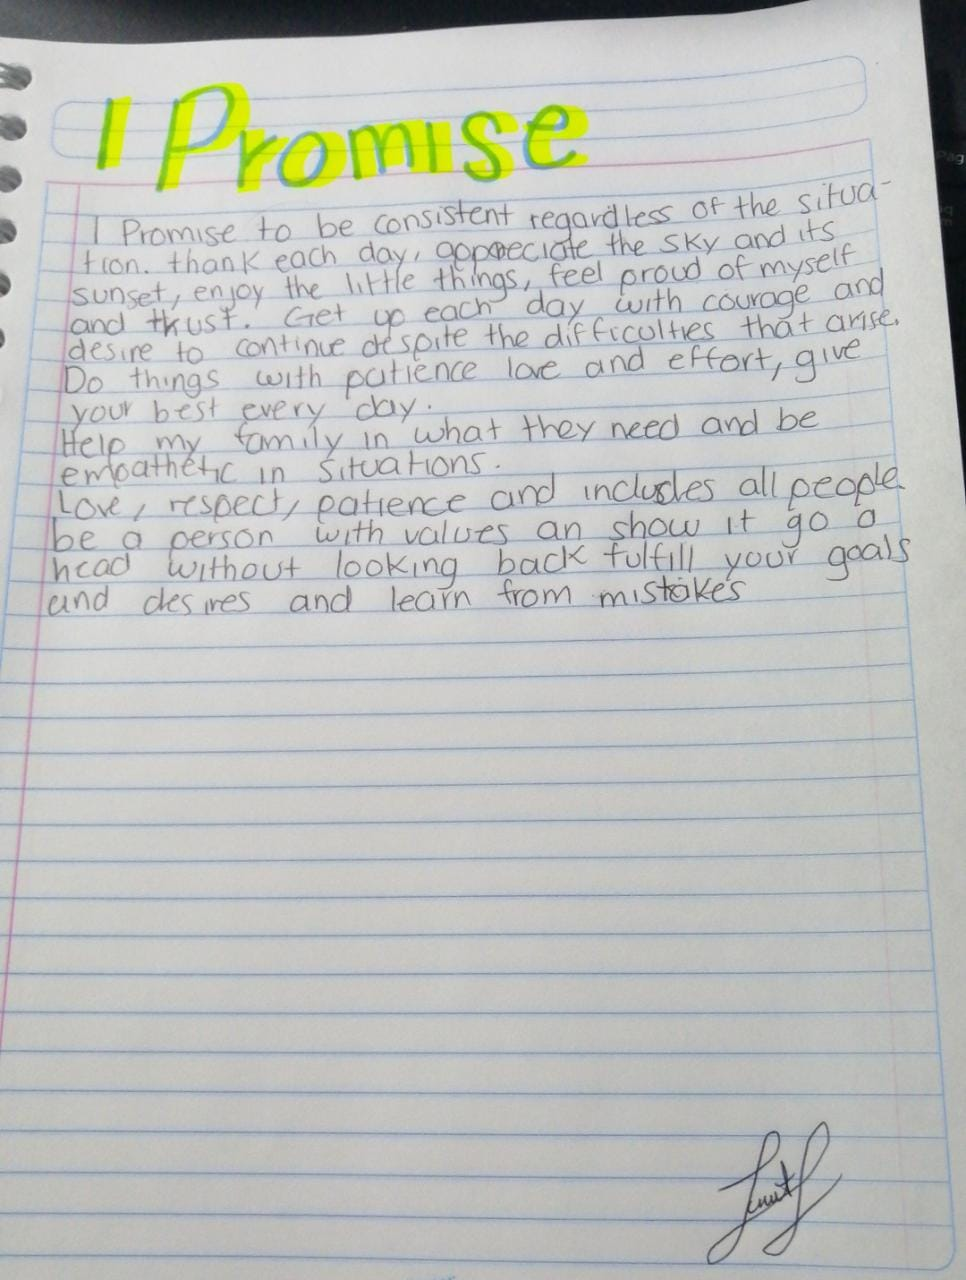 I Promise
I Promise to be consistent regardless of the situa-
tion. thank each day, appreciate the sky and its
sunset, enjoy the little things, feel proud of myself
and trust. Get up each day with courage and
desire to continue despite the difficulties that arise.
Do things with patience love and effort, give
your best every day.
Help my family in what they need and be
empathetic in situations.
Love, respect, patience and includes all people
be a person with values an show it go a
head without looking back fulfill your goals
and desires and learn from mistakes